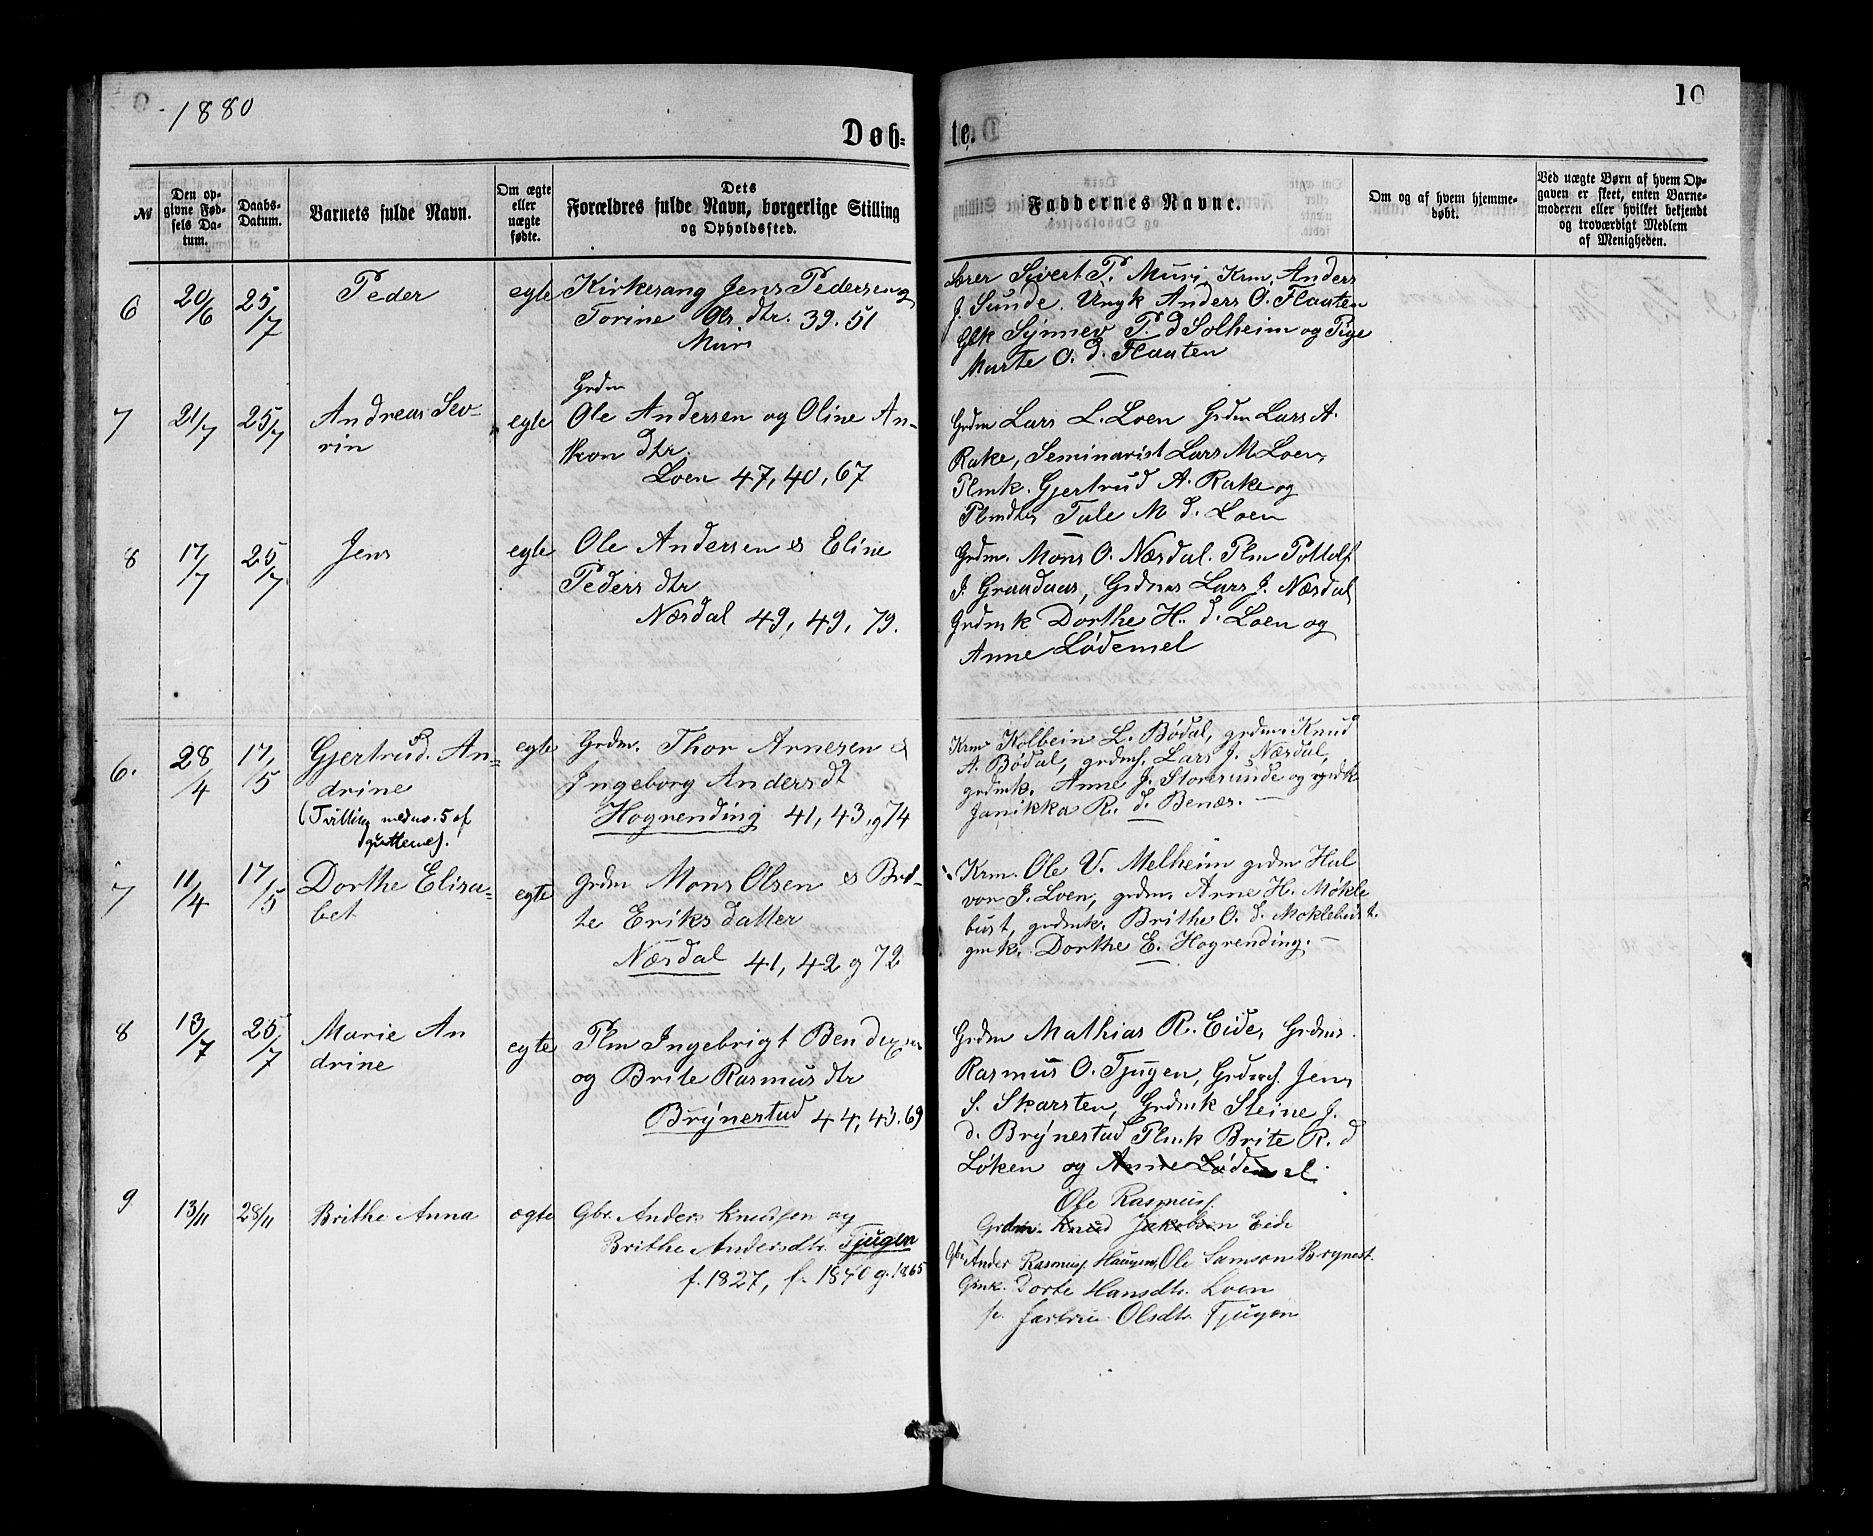 1880
10
Døb=
te.
№
Den op-
givne Fød-
sels Da-
tum.
Daabs-
Datum.
Barnets fulde Navn.
Om ægte
eller
uægte
fødte.
Dets
Forældres fulde Navn, borgerlige Stilling
og Opholdssted.
Faddernes Navne.
Om og af hvem hjemme-
døbt.
Ved uægte Børn af hvem Op-
gaven er skeet, enten Barne-
moderen eller hvilket bekjendt
og troværdigt Medlem
af Menigheden.
6
20/6
25/7
Peder
egte
Kirkesang Jens Pedersen og
Torine Ol. dtr. 39. 51
Muri
Lærer Sivert P. Muri, Krm. Anders
J. Sunde. Ungk Anders O. Flaaten
Gbk Synnev P. d Solheim og Pige
Marte O. d. Flaaten
7
21/7
25/7
Andreas Sev-
rin
egte
Grdm
Ole Andersen og Oline An-
dtr.
Loen 47, 40, 67
Grdm Lars L. Loen Grdm Lars A.
Rake, Seminarist Lars M. Loen,
Plmk. Gjertrud A. Rake og
Tale M. d. Loen
8
17/7
25/7
Jens
egte
Ole Andersen & Eline
Peders dtr
Næsdal 49, 49, 79.
Grdm. Mons O. Næsdal. Plm
J. Lars J. Næsdal
Grdmk Dorthe H. d. Loen og
Anne Lødemel
6.
28/4
17/5
Gjertrud An=
drine
(Tvilling med no. 5 af
guttene).
egte
Grdm. Thor Arnesen &
Ingeborg Andersdt
Hogrending 41, 43, g 74
Krm Kolbein L. Bødal, grdm. Knud
A. Bødal, Lars J. Næsdal,
grdmk. Anne J. Storesunde og
Janikka R. d. Benæs.
7
11/4
17/5
Dorthe Elisa-
bet
egte
grdm Mons Olsen & Bri-
te Eriksdatter
Næsdal 41, 42 g 72
Krm. Ole V. Melheim grdm Hal
vor J. Loen, grdm. Arne H. Møkle
bust, grdmk. Brithe O. d. Moklebust.
gmk. Dorthe E. Hogrending.
8
13/7
25/7
Marie An
drine
egte
Plm Ingebrigt Bendixsen
og Brite Rasmus dtr
Brynestad 44, 43. 69
Grdm Mathias R. Eide,
Rasmus O. Tjugen, Jens
S. Skarsten, Grdmk Steine J.
d. Brynestad Plmk Brite R. d
Løken og Anne Lødemel
9
13/11
28/11
Brithe Anna
ægte
Gbr. Anders Knudsen og
Brithe Andersdtr. Tjugen
f. 1827, f. 1840 g. 1865
Ole Rasmus.
Grdm. Knud Jakobsen Eide
Gbr. Anders Rasmus. Haugen, Ole Samson Brynest.
Gmk. Dorte Hansdtr. Loen
Olsdtr. Tjugen